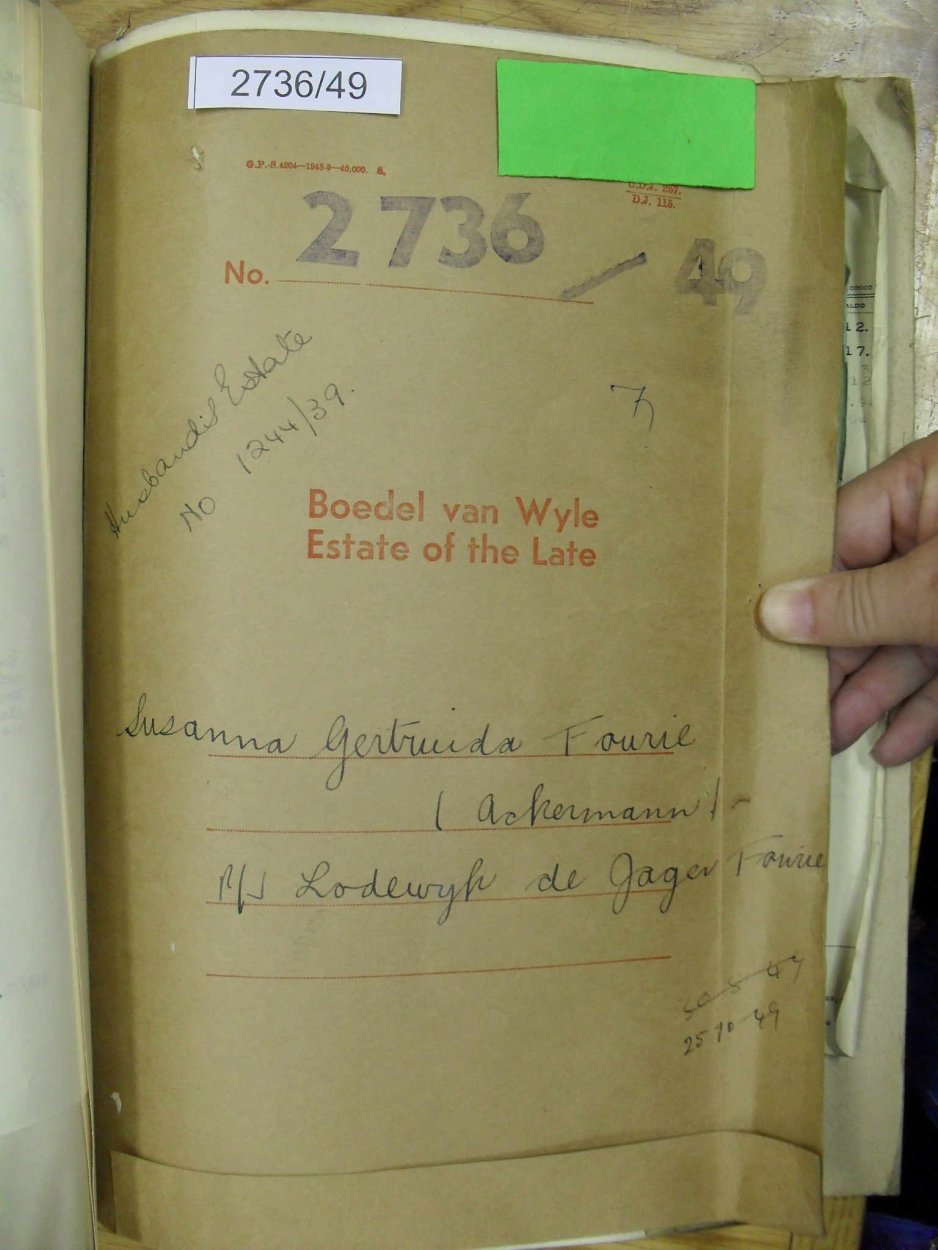 2736/49
G.P.-S.4204—1948-9—40,000. S.
D.J. 115.
No. 2736 / 49
Husband's Estate
No 1244/39.
Boedel van Wyle
Estate of the Late
Susanna Gertruida Fourie
(Ackermann)
Lodewyk de Jager Fourie
25 10 49